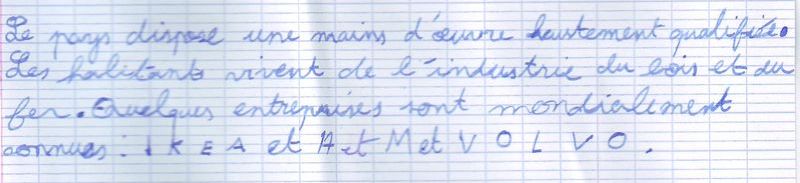 Le pays dispose une mains d'œuvre hautement qualifiée.
Les habitants vivent de l'industrie du bois et du
fer. Quelques entreprises sont mondialement
connues : I K E A et H et M et V O L V O.